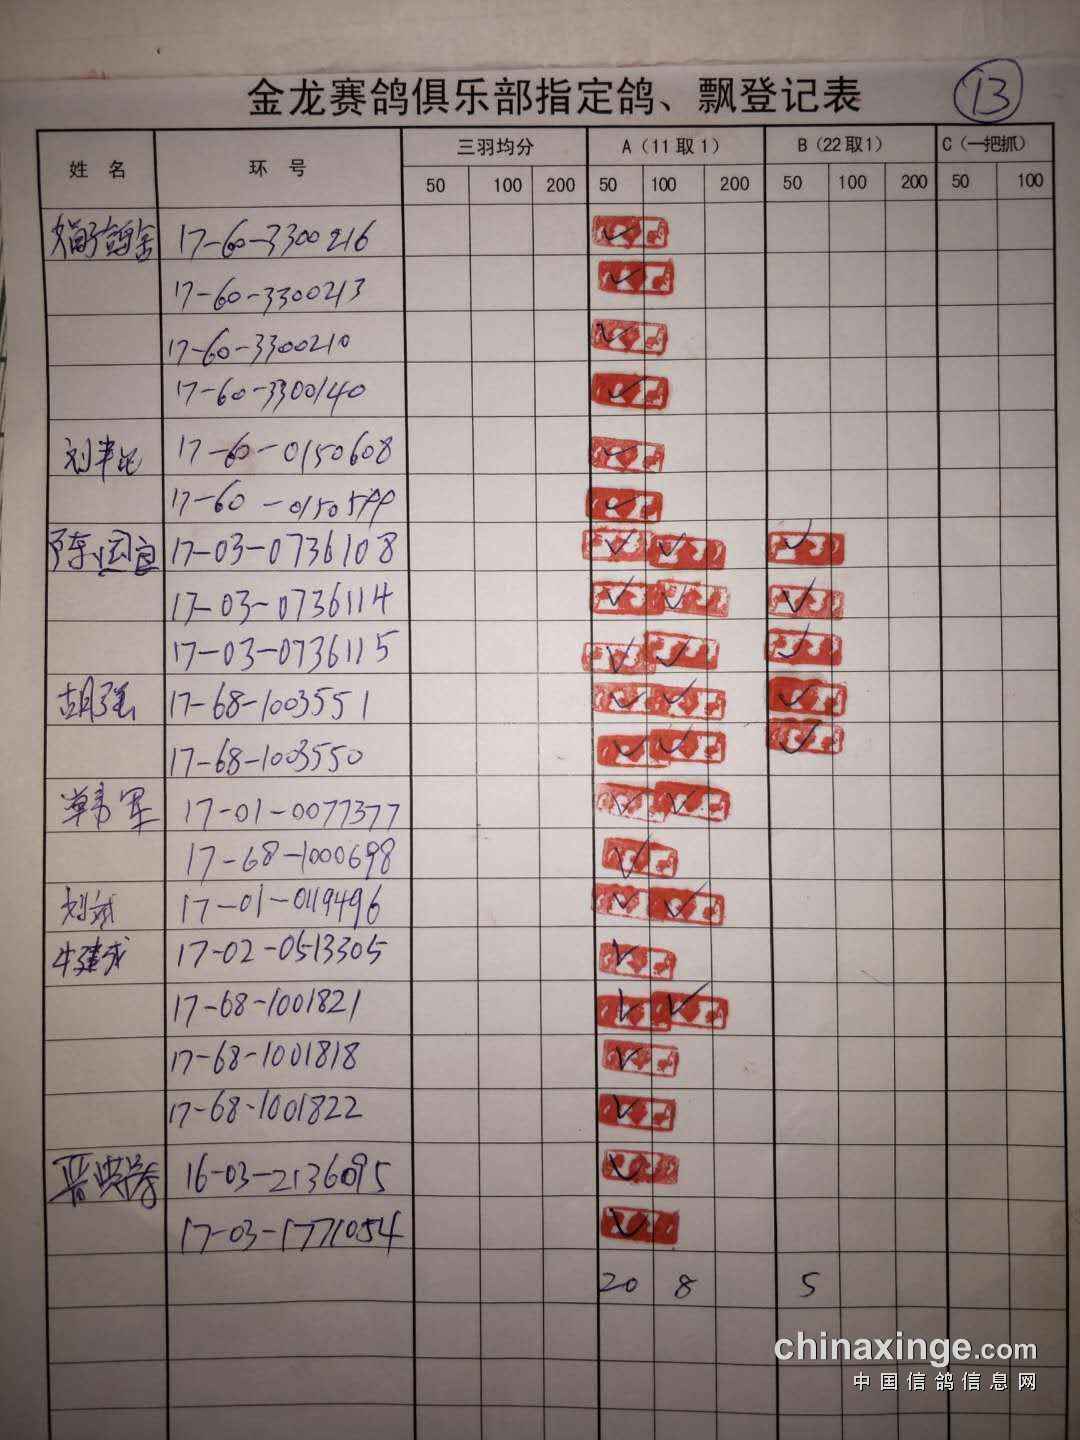 金龙赛鸽俱乐部指定鸽、飘登记表 13
姓 名 环 号 三羽均分 A(11取1) B(22取1) C(一把抓)
50 100 200 50 100 200 50 100 200 50 100
17-60-3300216
17-60-3300213
17-60-3300210
17-60-3300140
17-60-0150608
17-60-0150599
陈国良 17-03-0736108
17-03-0736114
17-03-0736115
胡强 17-68-1003551
17-68-1003550
韩军 17-01-0077377
17-68-1000698
刘斌 17-01-0119496
牛建成 17-02-0513305
17-68-1001821
17-68-1001818
17-68-1001822
16-03-2136095
17-03-1771054
20 8 5
chinaxinge.com
中国信鸽信息网